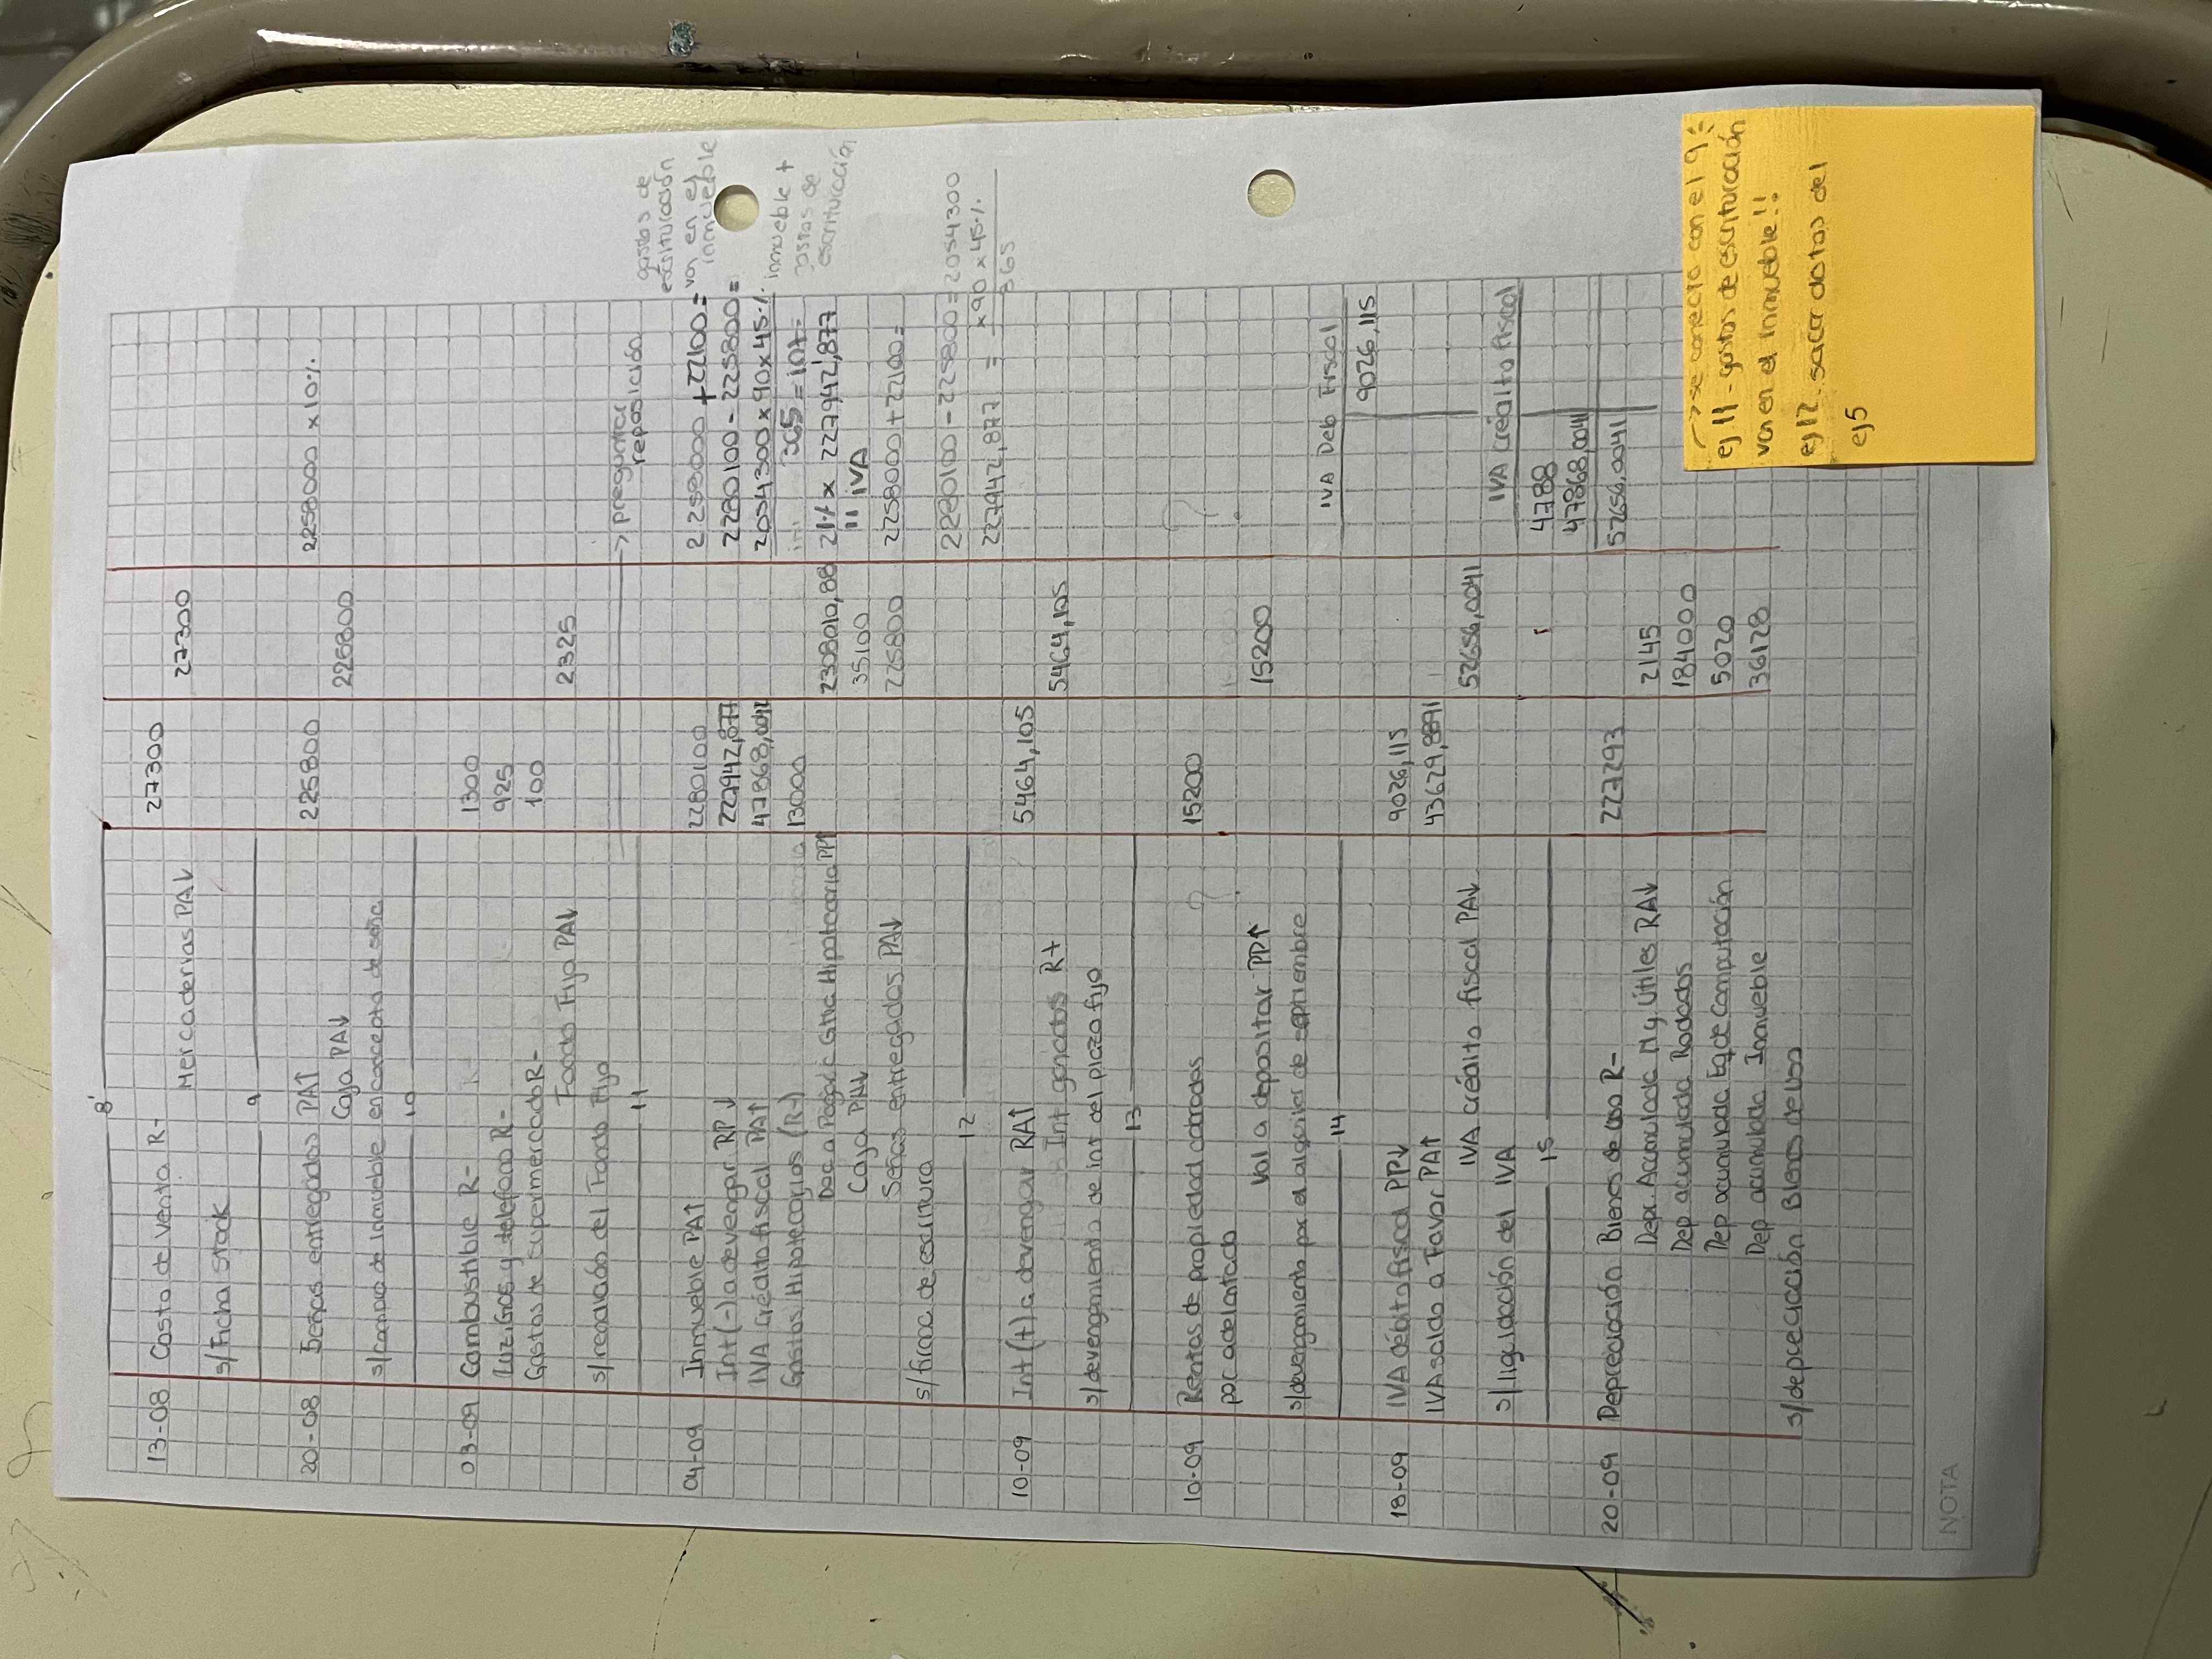 8'
13-08 Costo de venta R- 27300
Mercaderias PA↓ 27300
s/Ficha stock
9
20-08 Señas entregados PA↑ 225800 2258000 x 10%
Caja PA↓ 225800
s/compra de inmueble en concepto de seña
10
03-09 Combustible R- 1300
Luz, Gas y teléfono R- 925
Gastos de supermercado R- 100
Fondo Fijo PA↓ 2325
s/rendición del Fondo Fijo
11 -> preguntar reposición
gastos de
escrituración
van en el
inmueble
04-09 Inmueble PA↑ 2280100 2258000 + 22100 =
Int (-) a devengar RP↓ 227942,877 2280100 - 225800 =
IVA Crédito fiscal PA↑ 47868,0041 2054300 x 90 x 45%
Gastos Hipotecarios (R-) 13000 365 = 107 =
inmueble +
gastos de
escrituración
Doc a Pagar c Gtia Hipotecaria PP↑ 2308010,88 21% x 227942,877
Caja PA↓ 35100 11 IVA
Señas entregados PA↓ 225800 2258000 + 22100 =
s/firma de escritura
2280100 - 225800 = 2054300
12 227942,877 = x 90 x 45%
365
10-09 Int (+) a devengar RA↑ 5464,105
Int ganados R+ 5464,105
s/devengamiento de int del plazo fijo
13
10-09 Rentas de propiedad cobradas 15200 ?
por adelantado
Val a depositar PP↑ 15200
s/devengamiento por el alquiler de septiembre
14 IVA Deb Fiscal
18-09 IVA débito fiscal PP↓ 9026,115 9026,115
IVA saldo a Favor PA↑ 43629,8891
IVA crédito fiscal PA↓ 52656,0041
s/liquidación del IVA IVA Crédito fiscal
15 4788
47868,0041
20-09 Depreciación Bienes de uso R- 227293 52656,0041
Depr. Acumulada M y Útiles RA↓ 2145
Dep acumulada Rodados 184000
Dep acumulada Eq de Computación 5020
Dep acumulada Inmueble 36128
s/depreciación Bienes de Uso
NOTA
-> se conecta con el 9:
ej 11 - gastos de escrituración
van en el Inmueble!!
ej 12. sacar datos del
ej 5